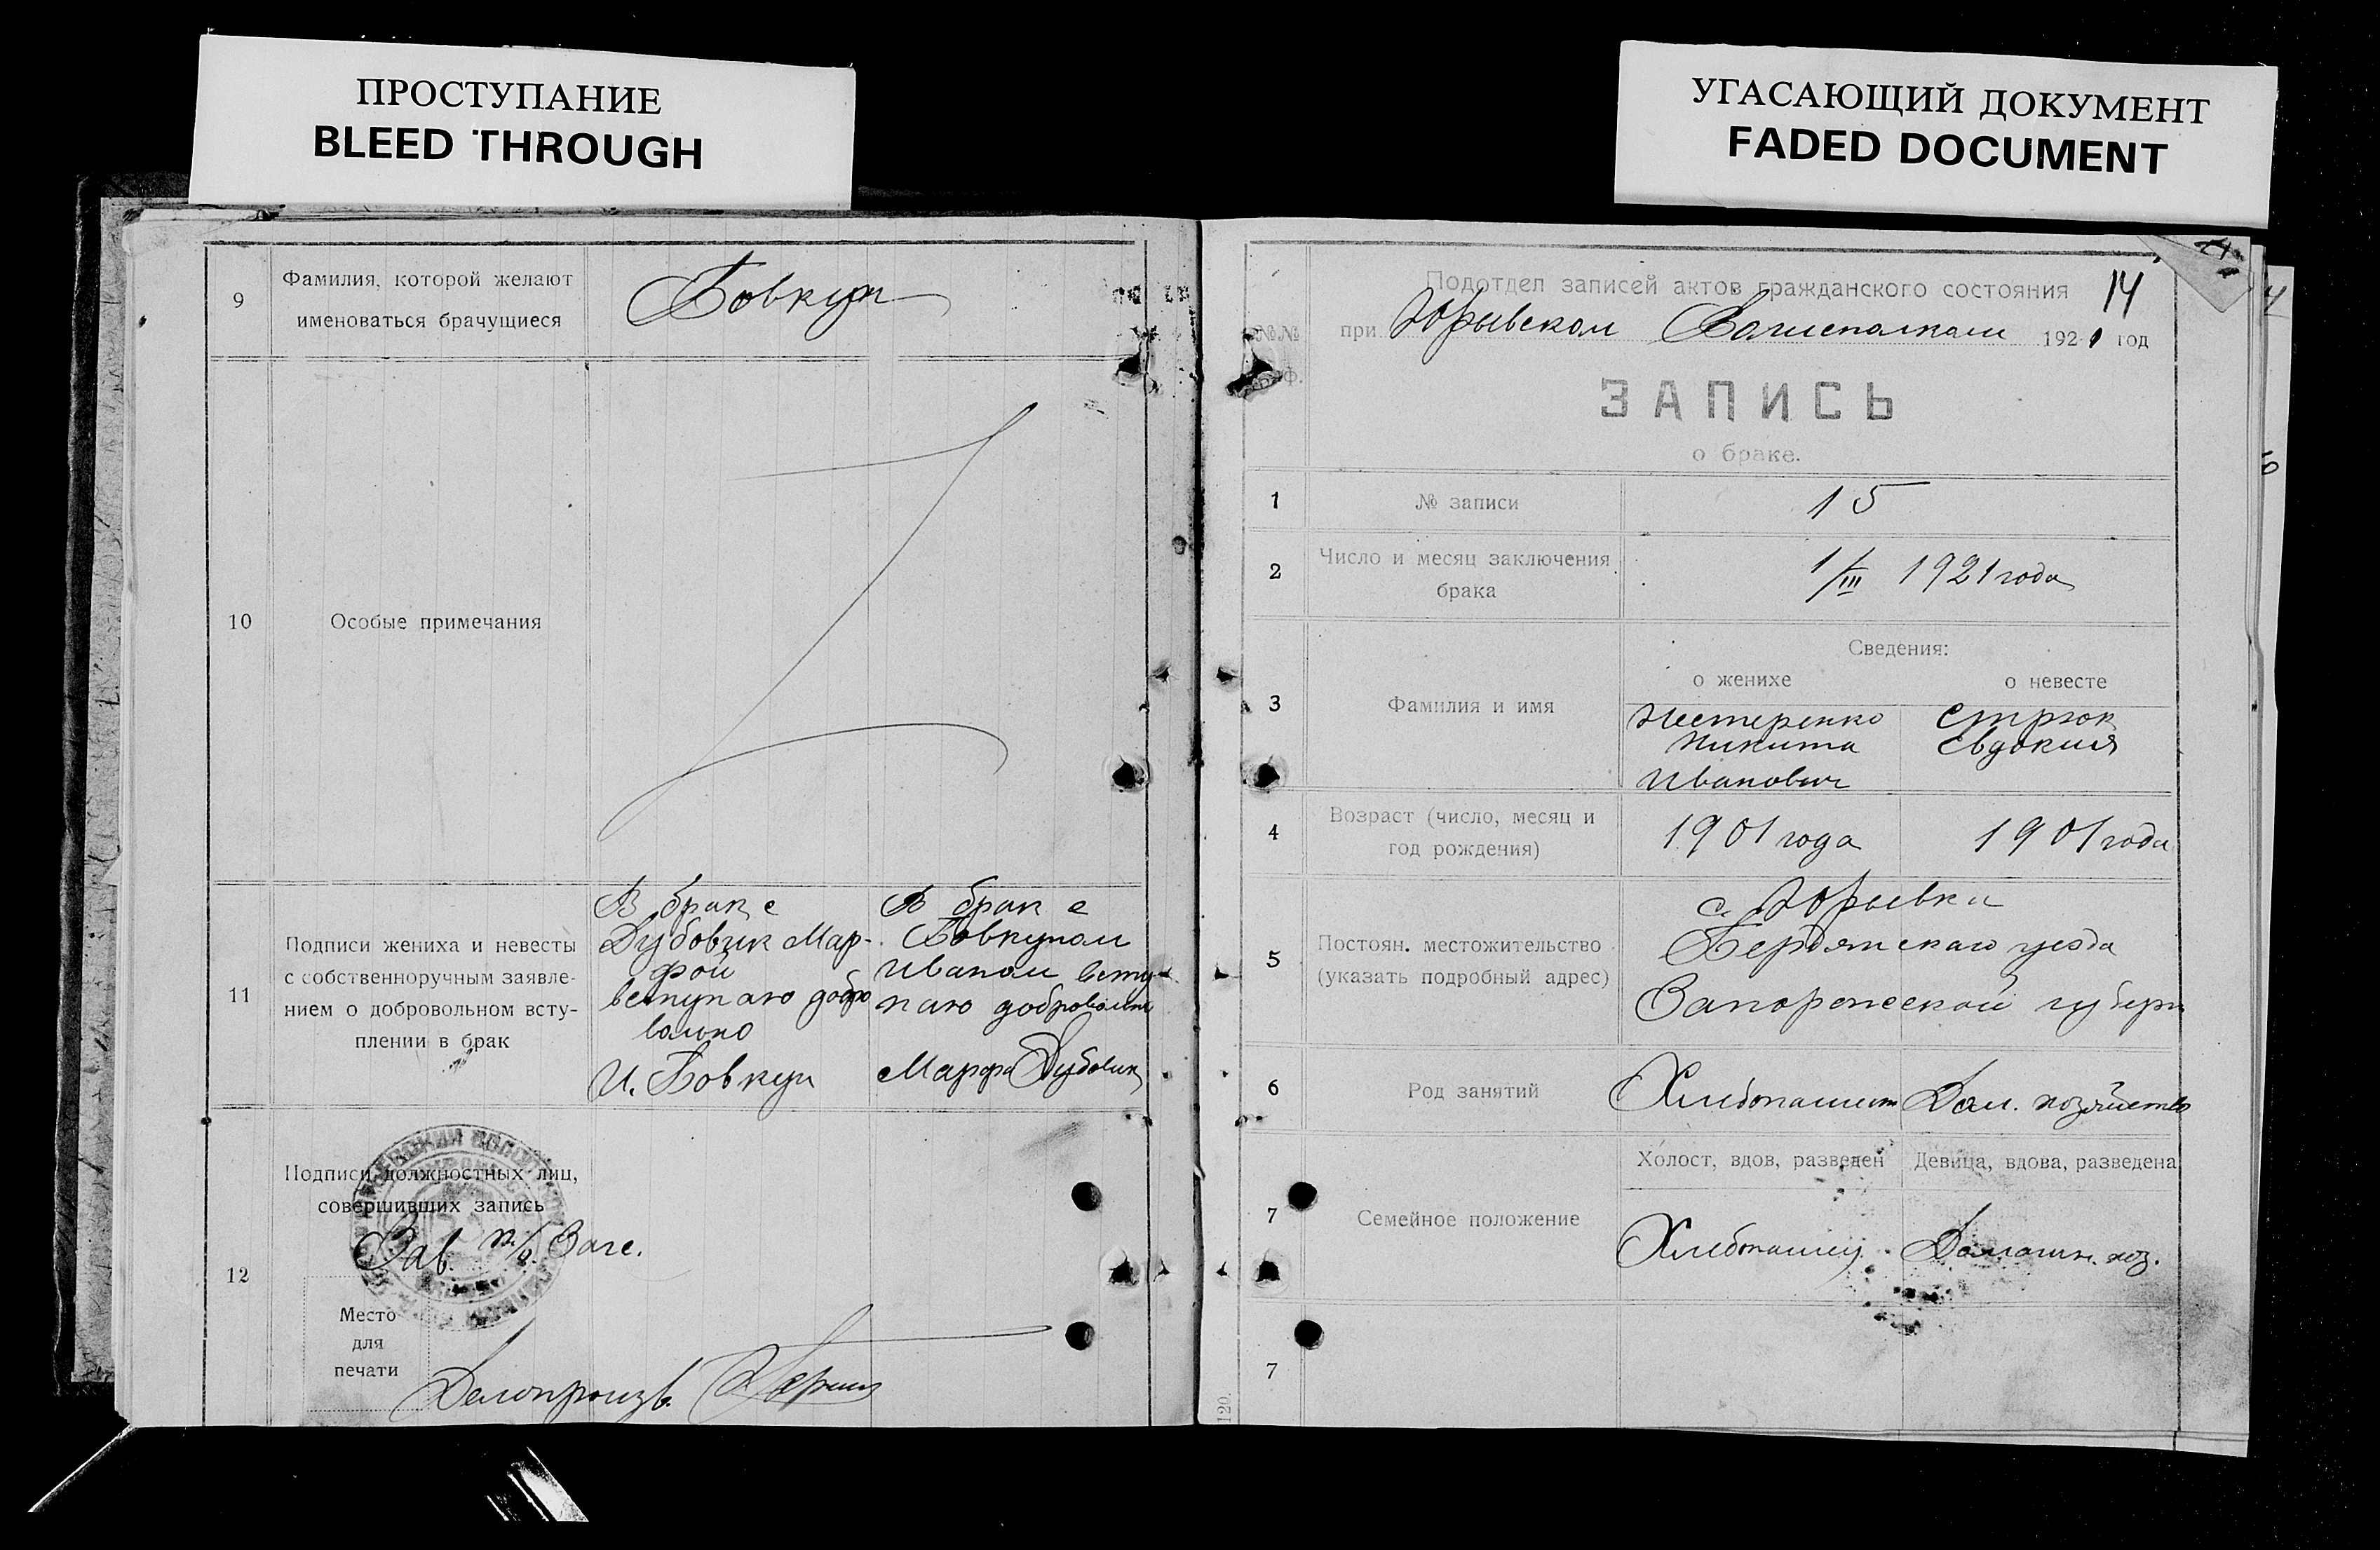 ПРОСТУПАНИЕ
BLEED THROUGH
УГАСАЮЩИЙ ДОКУМЕНТ
FADED DOCUMENT
9
Фамилия, которой желают
именоваться брачущиеся
Бовкун
10
Особые примечания
11
Подписи жениха и невесты
с собственноручным заявле-
нием о добровольном всту-
плении в брак
В брак с
Дубовик Мар-
фой
вступаю добро
вольно
И. Бовкун
В брак с
Бовкуном
Иваном всту-
паю добровольно
Марфа Дубовик
12
Подписи должностных лиц,
совершивших запись
Зав. п/о Загс.
Место
для
печати
Делопроизв.
14
Подотдел записей актов гражданского состояния
№№
при Юрьевском Волисполкоме 1921 год
ЗАПИСЬ
о браке.
1
№ записи
15
2
Число и месяц заключения
брака
1/III 1921 года
Сведения:
о женихе
о невесте
3
Фамилия и имя
Нестеренко
Никита
Иванович
Стрюк
Евдокия
4
Возраст (число, месяц и
год рождения)
1901 года
1901 года
5
Постоян. местожительство
(указать подробный адрес)
с. Юрьевка
Бердянскаго уезда
Запорожской губерн
6
Род занятий
Хлебопашест
Дом. хозяйство
7
Семейное положение
Холост, вдов, разведен
Девица, вдова, разведена
Хлебопашец
Домашн. хоз.
7
120.